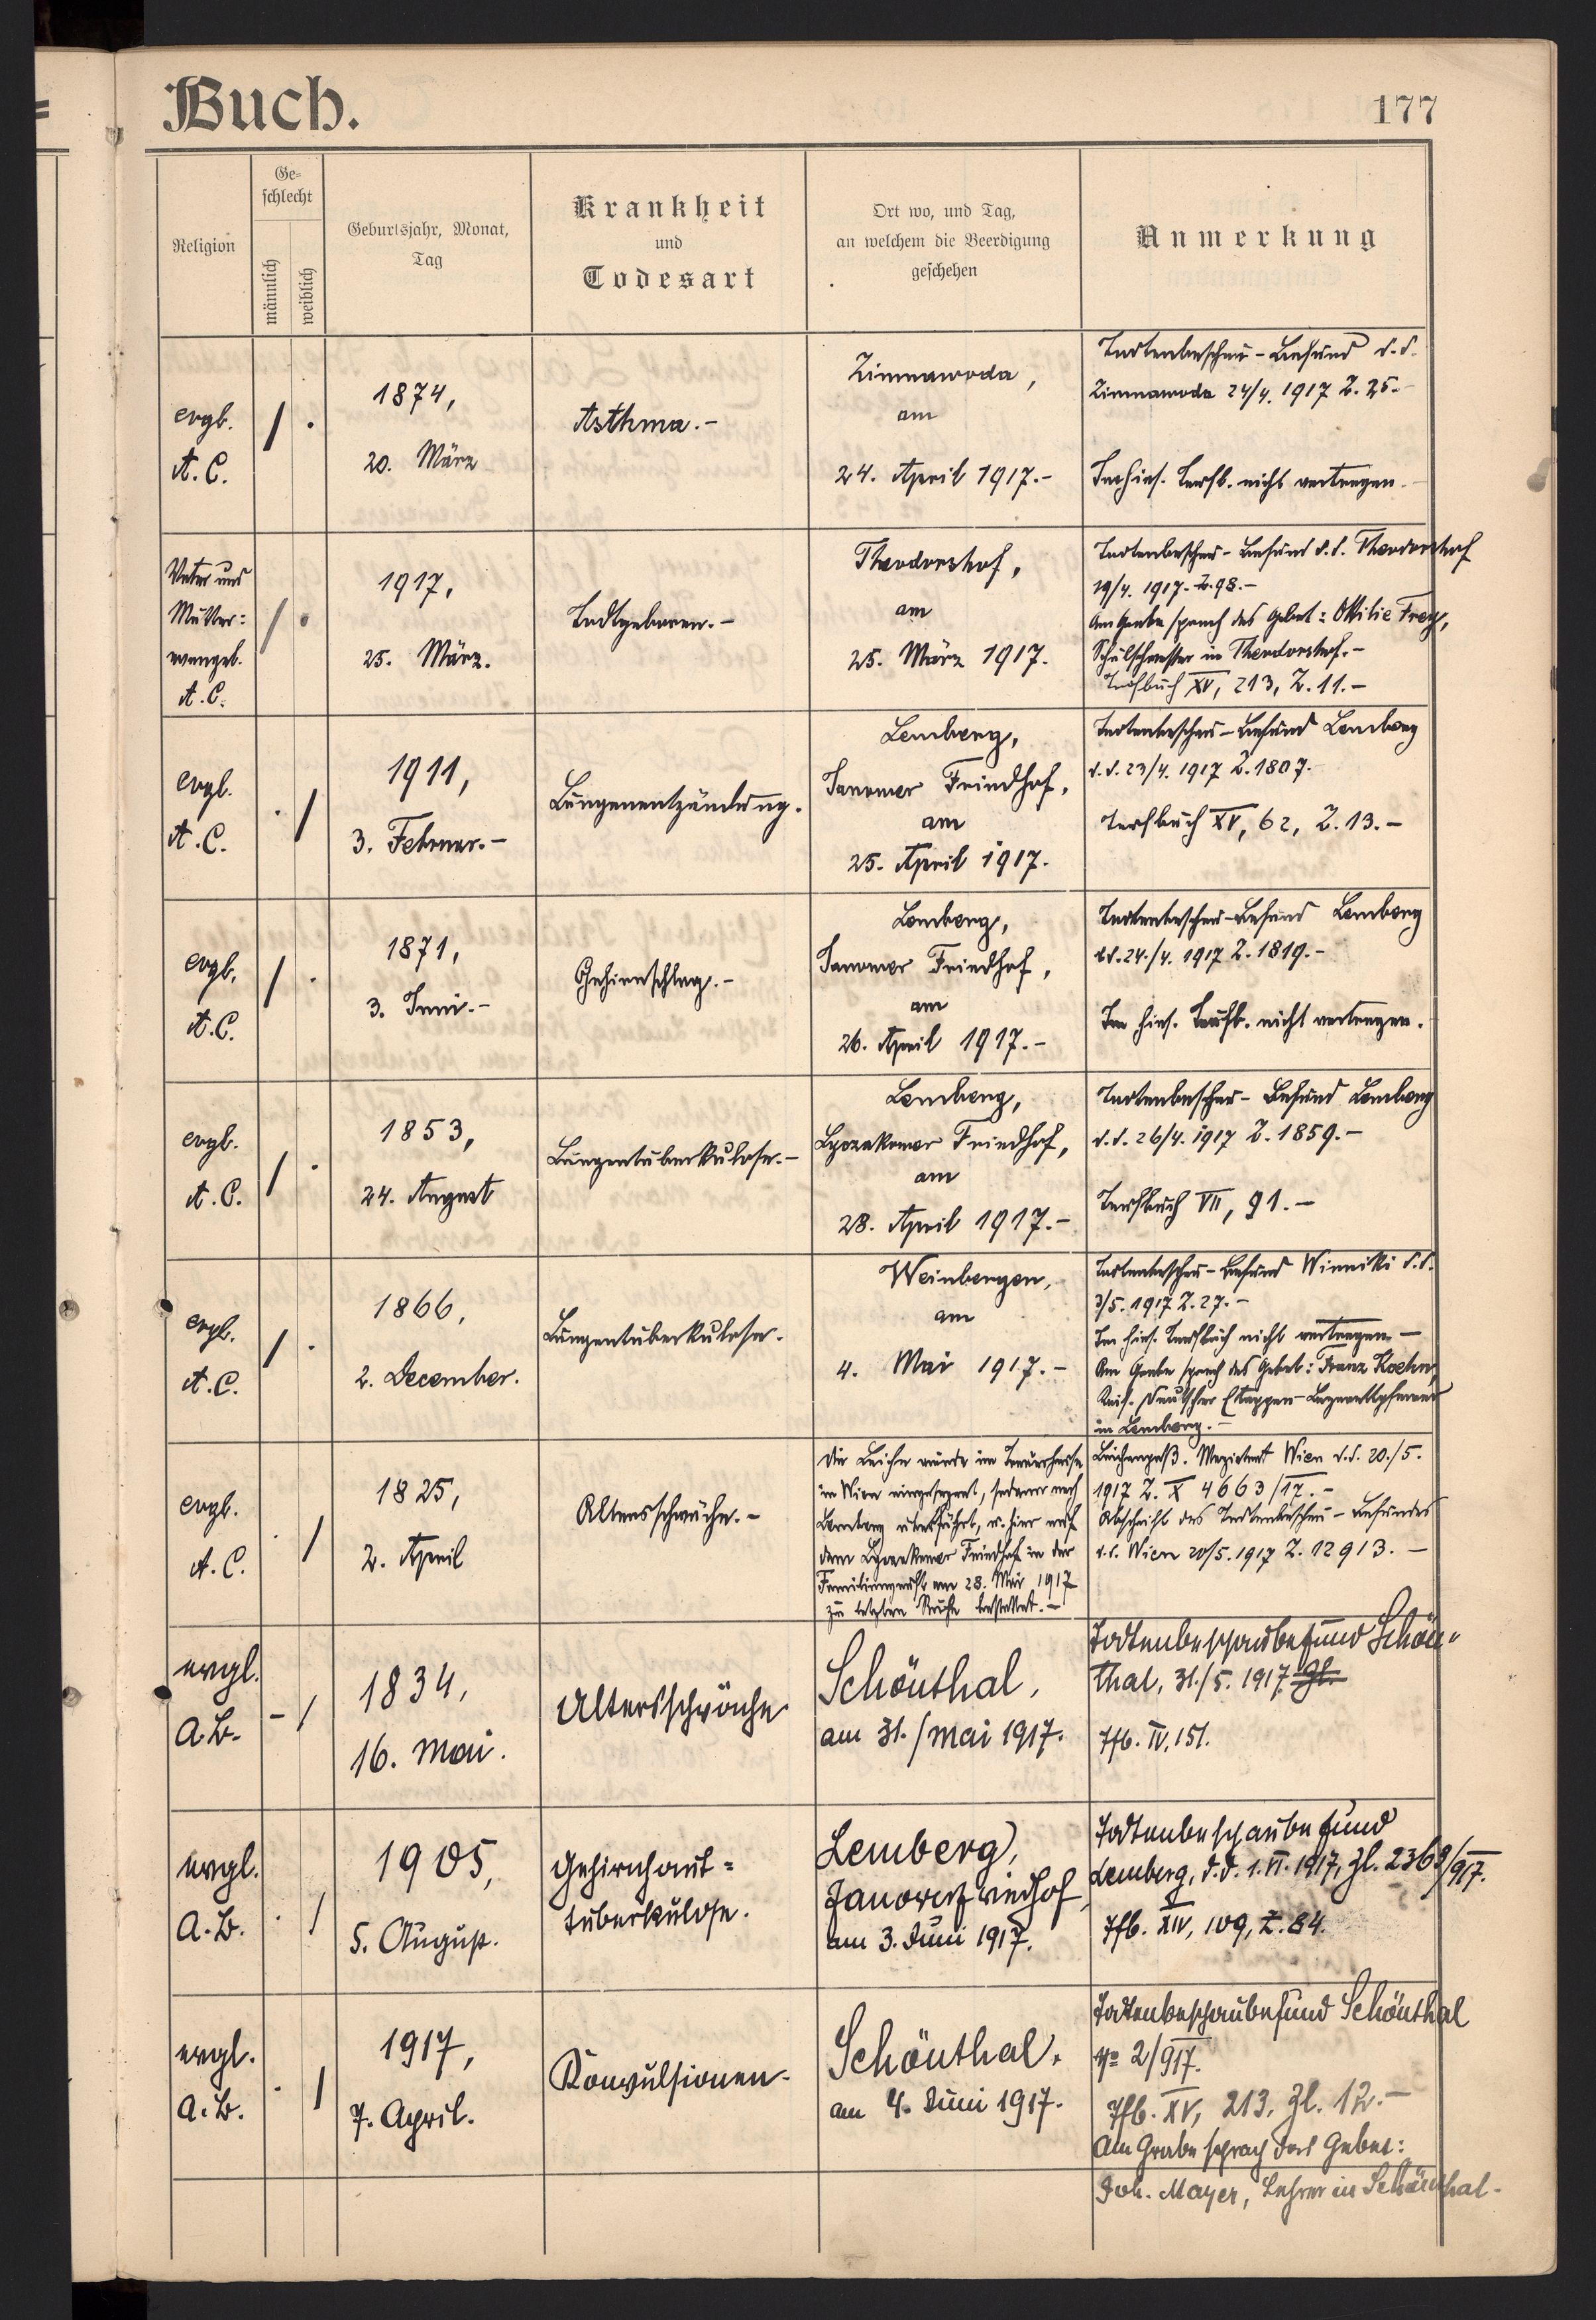 Buch.
177
Religion
Ge-
schlecht
männlich
weiblich
Geburtsjahr, Monat,
Tag
Krankheit
und
Todesart
Ort wo, und Tag,
an welchem die Beerdigung
geschehen
Anmerkung
evgl.
A.C.
1874,
20. März
Asthma.-
Zimnawoda,
am
24. April 1917.-
Todtenbeschau-Befund d.d.
Zimnawoda 24/4. 1917 Z. 25.-
hies. nicht vertragen.
Vater und
Mutter:
evangel.
A.C.
1917,
25. März.
Todtgeboren.-
Theodorshof,
am
25. März 1917.
Todtenbeschau-Befund d.d. Theodorshof
19/4. 1917. Z. 98.-
Am Grabe sprach das Gebet: Ottilie Frey,
Schulschwester in Theodorshof.-
Taufbuch XV, 213, Z. 11.-
evgl.
A.C.
1911,
3. Februar.-
Lungenentzündung.
Lemberg,
Janower Friedhof,
am
25. April 1917.
Todtenbeschau-Befund Lemberg
d.d. 23/4. 1917 Z. 1807.
Taufbuch XV, 62, Z. 13.-
evgl.
A.C.
1871,
3. Juni.-
Gehirnschlag.-
Lemberg,
Janower Friedhof,
am
26. April 1917.-
Todtenbeschau-Befund Lemberg
d.d. 24./4. 1917 Z. 1819.-
Im hies. Taufb. nicht vertragen.
evgl.
A.C.
1853,
24. August
Lungentuberkulose.-
Lemberg,
Lyczakower Friedhof,
am
28. April 1917.-
Todtenbeschau-Befund Lemberg
d.d. 26/4. 1917 Z. 1859.-
Taufbuch VII, 91.-
evgl.
A.C.
1866,
2. December.
Lungentuberkulose.
Weinbergen,
am
4. Mai 1917.-
Todtenbeschau-Befund Winniki d.d.
3/5. 1917 Z. 27.-
Im hies. Taufbuch nicht vertragen.-
Am Grabe sprach das Gebet: Franz Koehn,
Kais. Deutscher Etappen-Lazarettpfarrer
in Lemberg.-
evgl.
A.C.
1825,
2. April
Altersschwäche.-
Die Leiche wurde im Trauerhause
in Wien eingesegnet, sodann nach
Lemberg überführt, u. hier auf
dem Lyczakower Friedhof in der
Familiengruft am 28. Mai 1917
zu letzten Ruhe bestattet.-
Leichenpaß. Magistrat Wien d.d. 20./5.
1917 Z. X 4663/17.-
Abschrift des Todtenbeschau-Befundes
d.d. Wien 20/5. 1917 Z. 12913.-
evgl.
A.B.
1834,
16. Mai.
Altersschwäche
Schönthal,
am 31./Mai 1917.
Todtenbeschaubefund Schön-
thal, 31./5. 1917 Zl.
Tfb. IV, 151.
evgl.
A.B.
1905,
5. August.
Gehirnhaut-
tuberkulose.
Lemberg,
Janowerfriedhof,
am 3. Juni 1917.
Todtenbeschaubefund
Lemberg, d.d. 1.VI.1917, Zl. 2368/917.
Tfb. XIV, 109, Z. 84.
evgl.
A.B.
1917,
7. April.
Konvulsionen.
Schönthal,
am 4. Juni 1917.
Todtenbeschaubefund Schönthal
No 2/917.
Tfb. XV, 213, Zl. 12.-
Am Grabe sprach das Gebet:
Joh. Mayer, Lehrer in Schönthal.